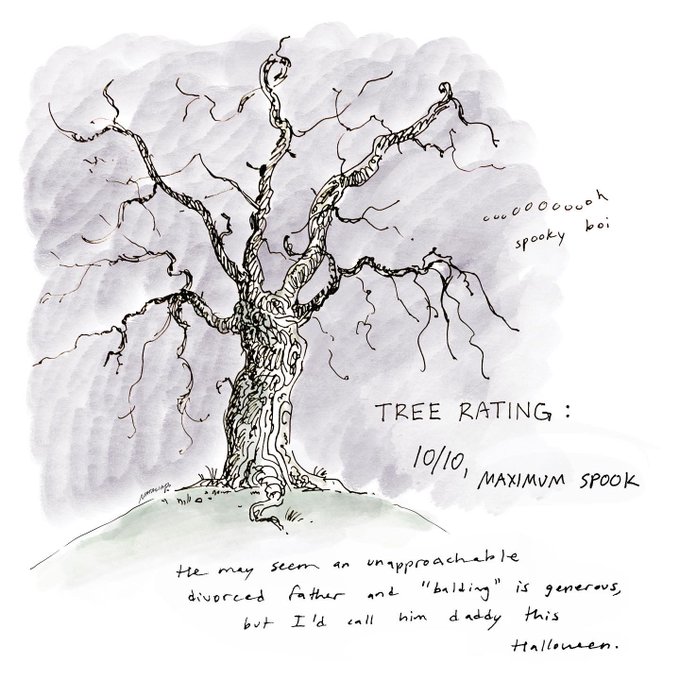 ooooooooooh
spooky boi
TREE RATING:
10/10, MAXIMUM SPOOK
He may seem an unapproachable
divorced father and "balding" is generous,
but I'd call him daddy this
Halloween.